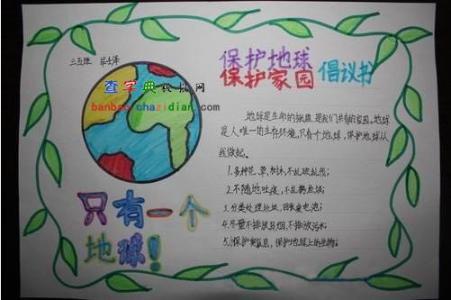 保护地球
保护家园 倡议书
查字典 板报网
banbao.chazidian.com
只有一个
地球!
地球是生命的摇篮,是我们共有的家园,地球
是人唯一的生存环境,只有个地球,保护地球从
我做起。
1.多种花、草、树木,不乱砍乱伐;
2.不随地吐痰,不乱扔垃圾;
3.分类处理垃圾,回收废电池;
4.尽量不排放,不排放污水;
5.保护,保护地球上的生物;